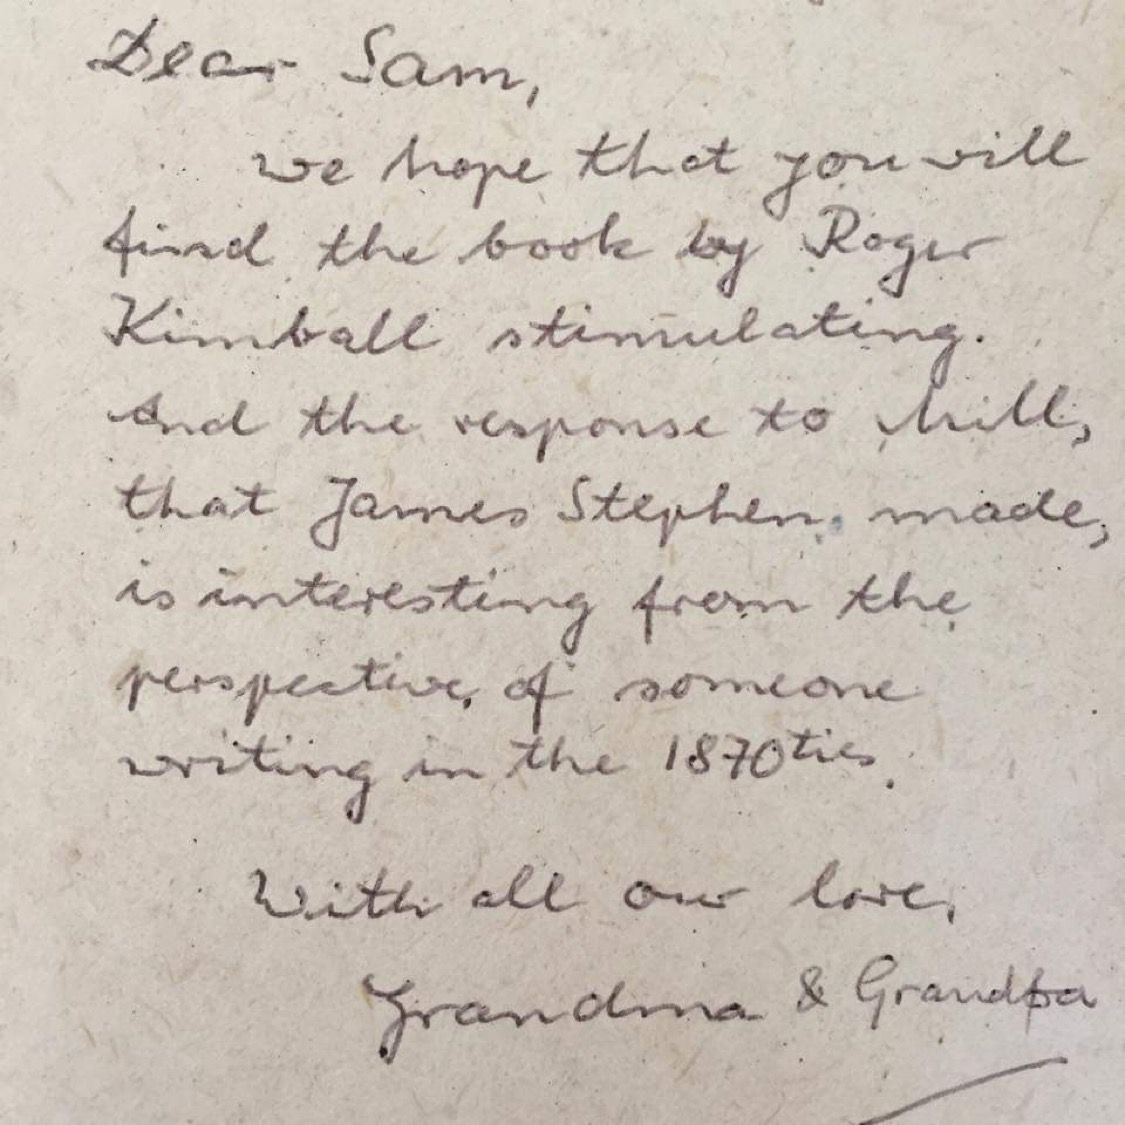 Dear Sam,
we hope that you will
find the book by Roger
Kimball stimulating.
And the response to Mill,
that James Stephen made,
is interesting from the
perspective of someone
writing in the 1870ties.
With all our love,
Grandma & Grandpa